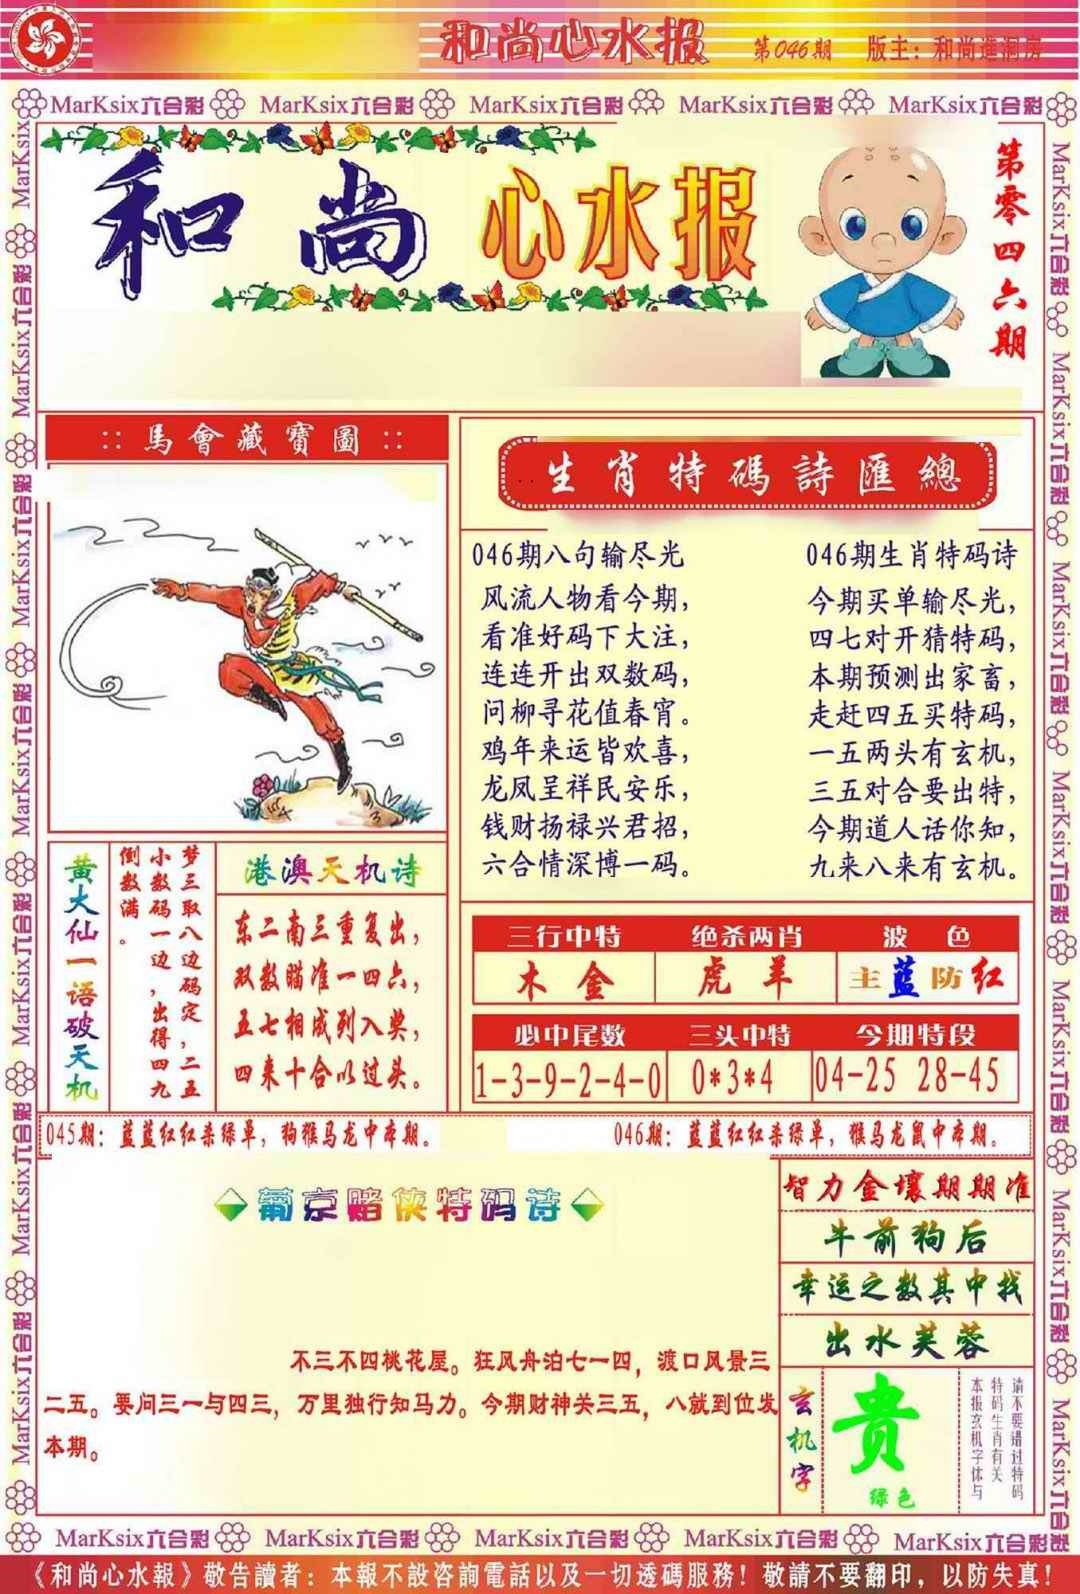 和尚心水报 第046期 版主：和尚進洞房
MarKsix六合彩 MarKsix六合彩 MarKsix六合彩 MarKsix六合彩 MarKsix六合彩
和尚心水报
第零四六期
:: 馬會藏寶圖 ::
生肖特碼詩匯總
046期八句输尽光
风流人物看今期，
看准好码下大注，
连连开出双数码，
问柳寻花值春宵。
鸡年来运皆欢喜，
龙凤呈祥民安乐，
钱财扬禄兴君招，
六合情深博一码。
046期生肖特码诗
今期买单输尽光，
四七对开猜特码，
本期预测出家畜，
走赶四五买特码，
一五两头有玄机，
三五对合要出特，
今期道人话你知，
九来八来有玄机。
黄大仙一语破天机
梦三取八边码定，二五
小数码一边，出得四九
倒数满。
港澳天机诗
东二南三重复出，
双数瞄准一四六，
五七相成列入奖，
四来十合以过头。
三行中特 绝杀两肖 波色
木金 虎羊 主蓝防红
必中尾数 三头中特 今期特段
1-3-9-2-4-0 0*3*4 04-25 28-45
045期：蓝蓝红红杀绿单，狗猴马龙中本期。
046期：蓝蓝红红杀绿单，猴马龙鼠中本期。
葡京赌侠特码诗
不三不四桃花屋。狂风舟泊七一四，渡口风景三
二五。要问三一与四三，万里独行知马力。今期财神关三五，八就到位发
本期。
智力金壤期期准
牛前狗后
幸运之数其中找
出水芙蓉
玄机字
贵
绿色
请不要错过特码
特码生肖有关
本报玄机字体与
MarKsix六合彩 MarKsix六合彩 MarKsix六合彩 MarKsix六合彩 MarKsix六合彩
《和尚心水報》敬告讀者：本報不設咨詢電話以及一切透碼服務！敬請不要翻印，以防失真！